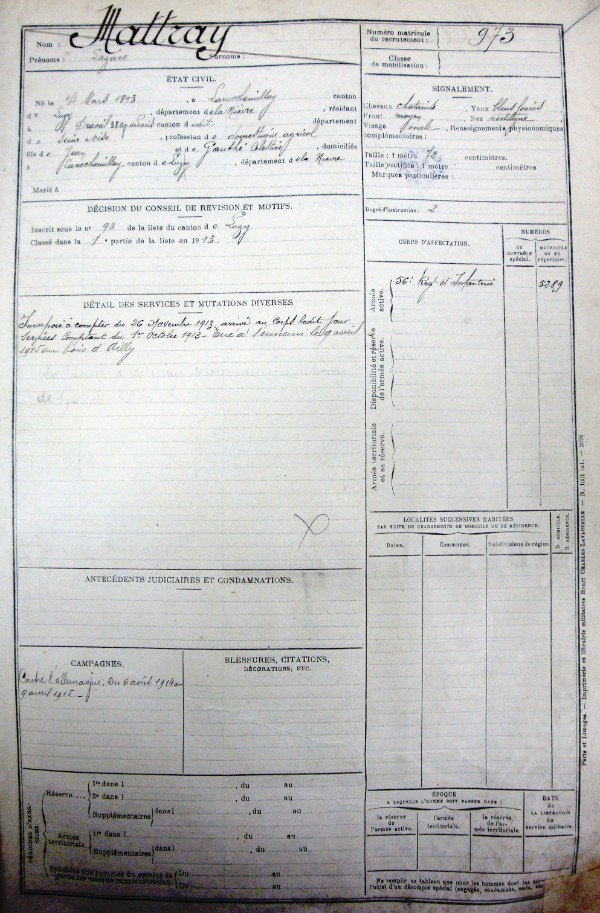 Nom : Mattray
Prénoms : Lazare Surnoms :
Numéro matricule du recrutement : 973
Classe de mobilisation :
ÉTAT CIVIL.
Né le 14 Mars 1893, à Lanocheuillay canton
d e Luzy, département de la Nièvre, résidant
à département
d e Seine & Oise, profession de domestique agricol
fils de Jean et de Gauthé domiciliés
à Lanocheuillay, canton de Luzy, département de la Nièvre
Marié à
SIGNALEMENT.
Cheveux chatains Yeux bleus foncés
Front moyen Nez rectiligne
Visage ovale Renseignements physionomiques
complémentaires :
Taille : 1 mètre 72 centimètres.
Taille rectifiée : 1 mètre centimètres
Marques particulières :
Degré d'instruction : 2
DÉCISION DU CONSEIL DE REVISION ET MOTIFS.
Inscrit sous le n° 93 de la liste du canton d e Luzy
Classé dans la 1e partie de la liste en 1913.
DÉTAIL DES SERVICES ET MUTATIONS DIVERSES
Incorporé à compter du 26 Novembre 1913, arrivé au Corps ledit jour.
Services Comptant du 1er Octobre 1913 - Tué à l'ennemi le 9 avril
1915 au bois d'Ailly
CORPS D'AFFECTATION.
NUMÉROS
DU CONTRÔLE spécial.
MATRICULE OU AU répertoire.
Armée active.
56e Regt d'Infanterie 5289
Disponibilité et réserve de l'armée active.
Armée territoriale et sa réserve.
LOCALITÉS SUCCESSIVES HABITÉES
PAR SUITE DE CHANGEMENTS DE DOMICILE OU DE RÉSIDENCE.
Dates. Communes. Subdivisions de région
D. DOMICILE.
R. RÉSIDENCE.
ANTÉCÉDENTS JUDICIAIRES ET CONDAMNATIONS.
CAMPAGNES.
Contre l'allemagne : Du 6 août 1914 au
9 avril 1915 -
BLESSURES, CITATIONS,
DÉCORATIONS, ETC.
PÉRIODES D'EXERCICES.
Réserve....
1re dans l , du au
2e dans l , du au
Supplémentaires dans l , du au
Armée territoriale.
1re dans l , du au
Supplémentaires dans l , du au
Spéciales aux hommes du service de
garde des voies de communication
Du au
Du au
ÉPOQUE
A LAQUELLE L'HOMME DOIT PASSER DANS :
la réserve de l'armée active.
l'armée territoriale.
la réserve de l'armée territoriale.
DATE de LA LIBÉRATION du service militaire.
Ne remplir ce tableau que pour les hommes dont les
l'objet d'un décompte spécial (engagés, condamnés,
Paris et Limoges. — Imprimerie et librairie militaires Henri CHARLES-LAVAUZELLE